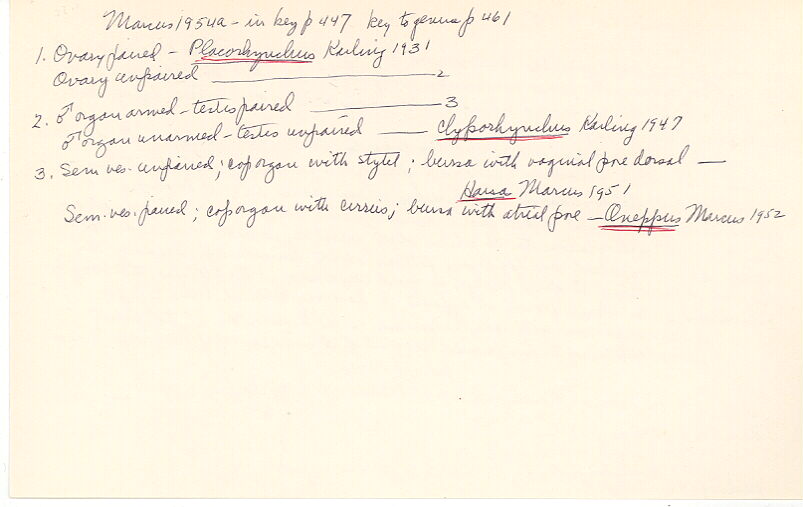 Marcus 1954a - in key p 447 key to genus p 461
1. Ovary paired - Placorhynchus Karling 1931
Ovary unpaired ——— 2
2. ♂ organ armed - testis paired ——— 3
♂ organ unarmed - testis unpaired ——— Clyporhynchus Karling 1947
3. Sem ves. unpaired; cop organ with stylet; bursa with vaginal pore dorsal —
Harsa Marcus 1951
Sem. ves. paired; cop organ with cirrus; bursa with atrial pore - Oneppus Marcus 1952